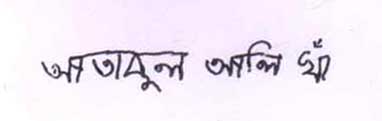 আতাবুল আলি খাঁ